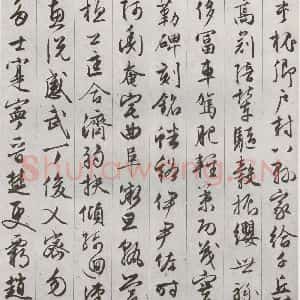 槐卿户封八縣家給千兵
高冠陪輦驅轂振纓世祿
侈富車駕肥輕策功茂實
勒碑刻銘磻溪伊尹佐時
阿衡奄宅曲阜微旦孰營
桓公匡合濟弱扶傾綺迴漢
惠說感武丁俊乂密勿
多士寔寧晉楚更霸趙
Shufawang.CN